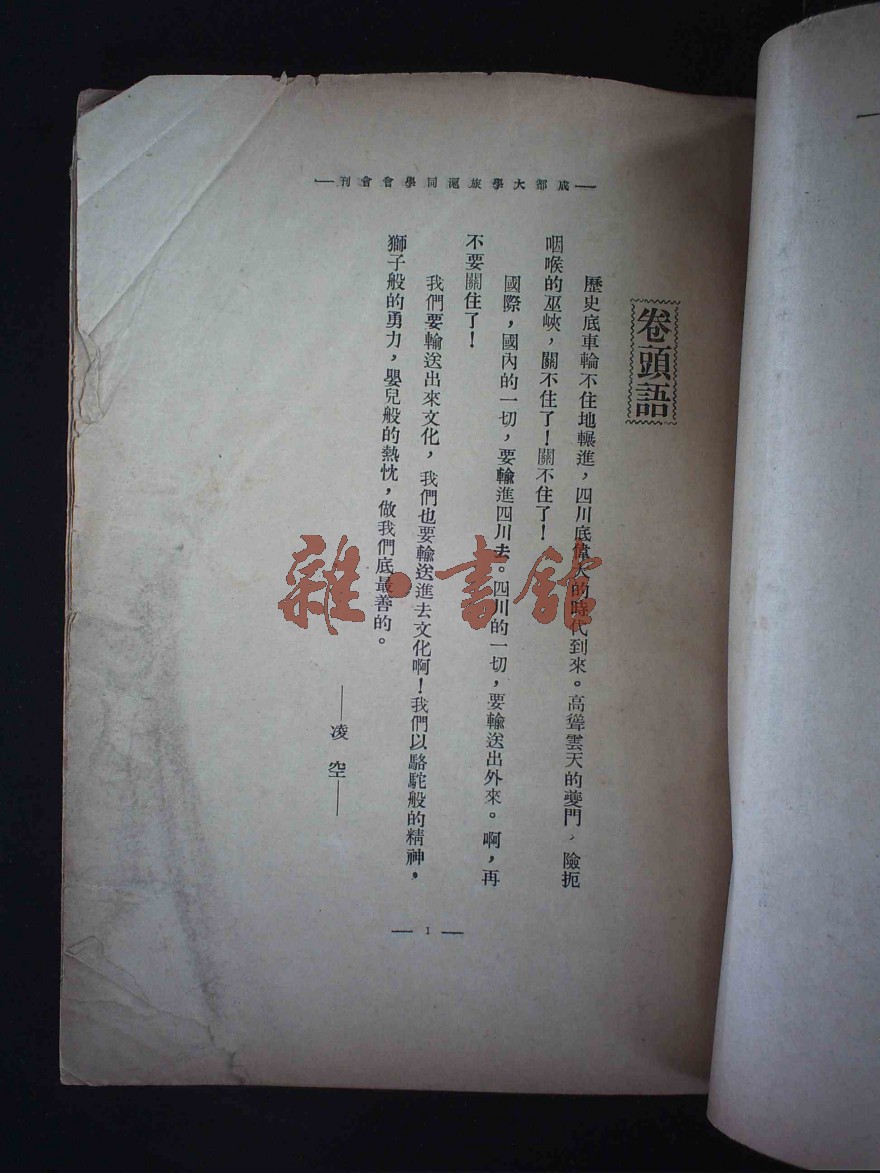 —成都大學旅滬同學會會刊—
卷頭語
歷史底車輪不住地輾進，四川底偉大的時代到來。高聳雲天的夔門，險扼
咽喉的巫峽，關不住了！關不住了！
國際，國內的一切，要輸進四川去。四川的一切，要輸送出外來。啊，再
不要關住了！
我們要輸送出來文化，我們也要輸送進去文化啊！我們以駱駝般的精神，
獅子般的勇力，嬰兒般的熱忱，做我們底最善的。
——凌空——
— 1 —
雜·書館